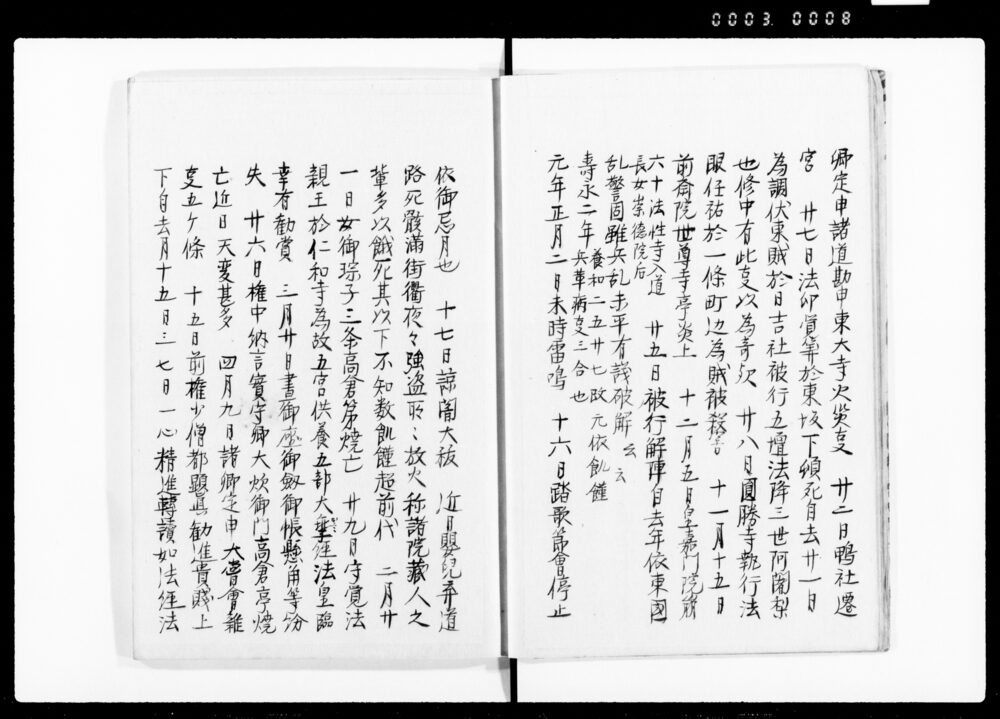 0003 0008
卿定申諸道勘申東大寺火災㕝 廿二日鴨社遷
宮 廿七日法印覚算於東坂下頓死自去廿一日
為調伏東賊於日吉社被行五壇法降三世阿闍梨
也修中有此㕝以為奇欤 廿八日圓勝寺執行法
眼任祐於一條町辺為賊被殺害 十一月十五日
前斎院世尊寺亭炎上 十二月五日皇嘉門院崩
六十法性寺入道長女崇德院后 廿五日被行解陣自去年依東國
乱警固雖兵乱未平有議被解云云
壽永二年 養和二五廿七改元依飢饉兵革病㕝三合也
元年正月二日未時雷鳴 十六日踏歌節會停止
依御忌月也 十七日諒闇大祓 近日嬰兒弃道
路死骸滿街衢夜々強盗所々放火称諸院藏人之
輩多以餓死其以下不知数飢饉超前代 二月廿
一日女御琮子三条高倉第焼亡 廿九日守覚法
親王於仁和寺為故五宮供養五部大乗経法皇臨
幸有勧賞 三月廿日晝御座御劔御帳懸角等紛
失 廿六日権中納言實守卿大炊御門高倉亭焼
亡近日天変甚多 四月九日諸卿定申大嘗會雜
㕝五ケ條 十五日前権少僧都顕真勧進貴賤上
下自去月十五日三七日一心精進轉讀如法経法